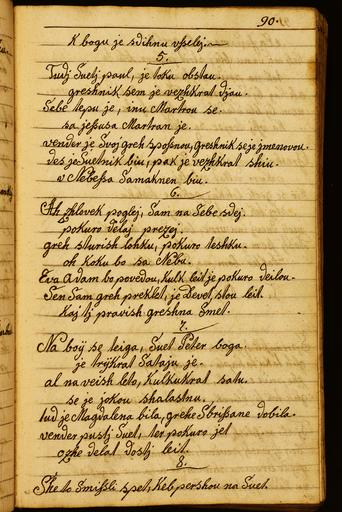 90.
K bogu je sdihnu vsselej.
5.
Tudj Suetj paul, je toku obstau.
greshnik sem je vezhkrat djau.
Sebe tepu je, inu Martrou se.
sa jessusa Martran je.
vender je svoj greh spossnou, greshnik se je jmenovou.
des je Suetnik biu, pak je vezhkrat shiu.
v Nebessa Samaknen biu.
6.
Ah zhlovek poglej, Sam na Sebe sdej.
pokuro delaj prezej.
greh sturish lohku, pokuro teshku.
oh koku bo sa Nebu.
Eva Adam bo povedou, kulk leit je pokuro deilou.
Sen Sam greh preklet, je Devet stou leit.
kaj tj pravish greshna Smet.
7.
Na boij se teiga, Suet Peter boga
je trijkrat Sataju je.
al na veish leto, kulkukrat satu.
se je jokou shalastnu.
tud je Magdalena bila, grehe Sbrissane dobila.
vender pustj Suet, ter pokuro jet
ozhe delat dostj leit.
8.
She to smissli spet, keb pershou na Suet